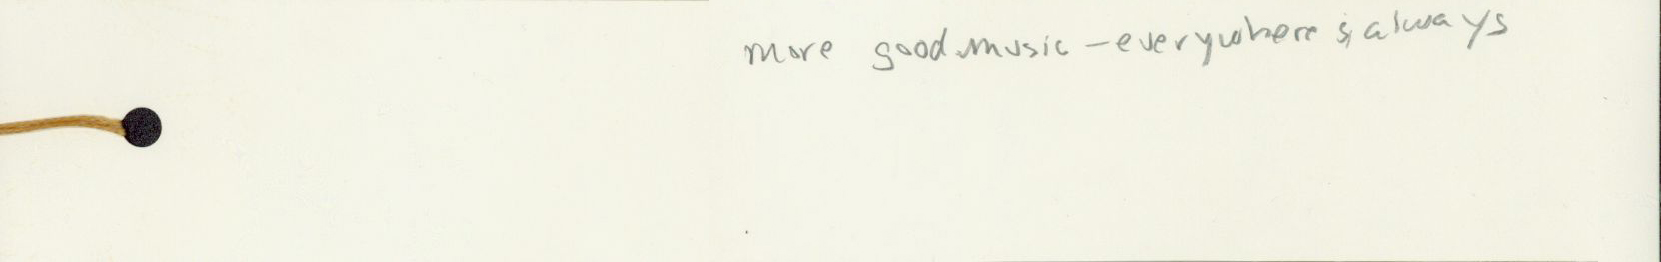 more good music - everywhere & always